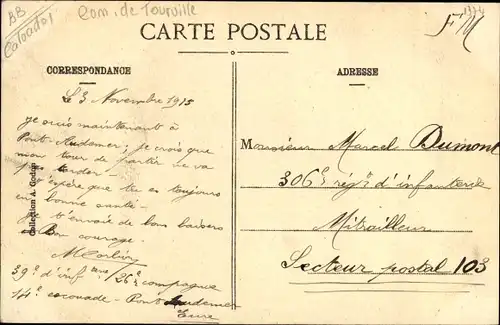 BB
Calvados
Com. de Tourville
F M
CARTE POSTALE
CORRESPONDANCE
ADRESSE
Le 3 Novembre 1915
Je suis maintenant à
Pont-Audemer; je crois que
mon tour de partir ne va
pas tarder
J'espère que tu es toujours
en bonne santé
Je t'envoie de bons baisers
Bon courage.
39e d'infrie / 26e compagnie
14e escouade - Pont Audemer
Eure
Monsieur Marcel Dumont
306e régt d'infanterie
Mitrailleur
Secteur postal 103
Collection A. Godon